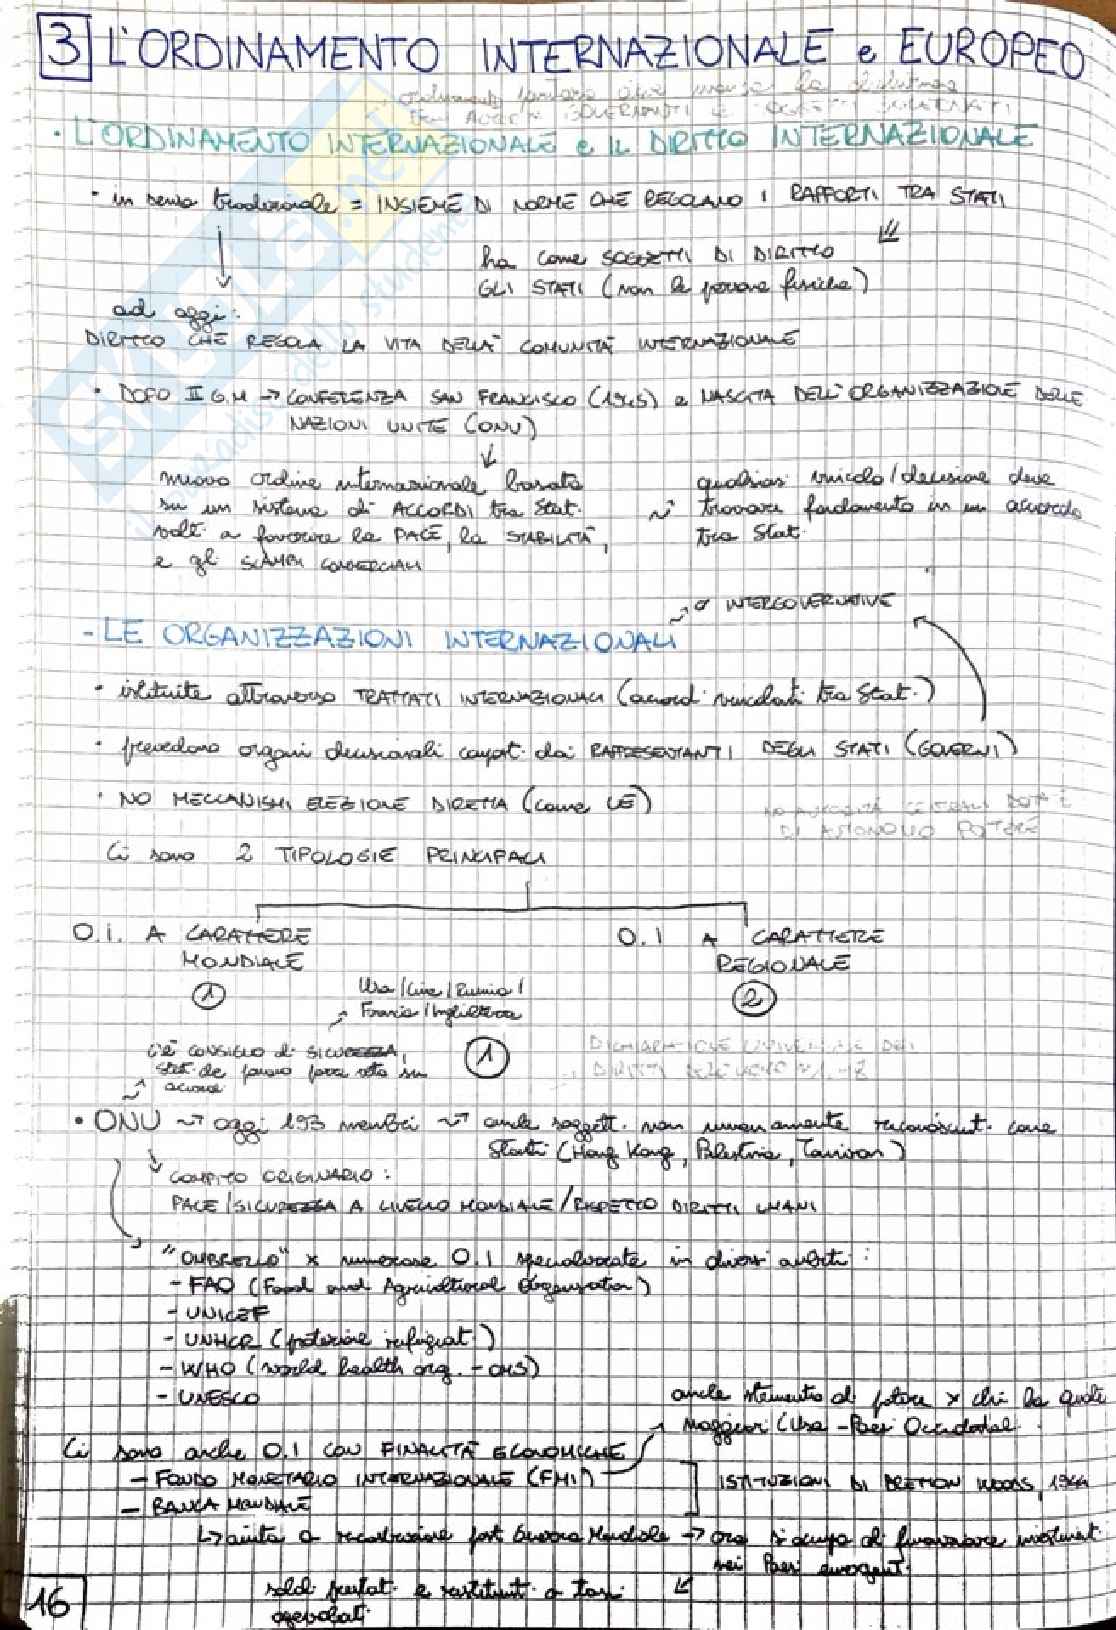 3 L'ORDINAMENTO INTERNAZIONALE e EUROPEO
• L'ORDINAMENTO INTERNAZIONALE e IL DIRITTO INTERNAZIONALE
• in senso tradizionale = INSIEME DI NORME CHE REGOLANO I RAPPORTI TRA STATI
ha come SOGGETTI DI DIRITTO
GLI STATI (non le persone fisiche)
ad oggi:
DIRITTO CHE REGOLA LA VITA DELLA COMUNITÀ INTERNAZIONALE
• DOPO II G.M → CONFERENZA SAN FRANCISCO (1945) e NASCITA DELL'ORGANIZZAZIONE DELLE
NAZIONI UNITE (ONU)
nuovo ordine internazionale basato
su un sistema di ACCORDI tra Stat.
volt. a favorire la PACE, la STABILITÀ,
e gl. SCAMBI COMMERCIALI
qualsiasi vincolo/decisione deve
trovare fondamento in un accordo
tra Stat.
o INTERGOVERNATIVE
- LE ORGANIZZAZIONI INTERNAZIONALI
• istituite attraverso TRATTATI INTERNAZIONALI (accord. vincolanti tra Stat.)
• prevedono organi decisionali compost. dai RAPPRESENTANTI DEGLI STATI (GOVERNI)
• NO MECCANISMI ELEZIONE DIRETTA (come UE)
NO AUTORITÀ CENTRALI DOTATE
DI AUTONOMO POTERE
Ci sono 2 TIPOLOGIE PRINCIPALI
O.I. A CARATTERE
MONDIALE
1
O.I A CARATTERE
REGIONALE
2
Usa/Cina/Russia/
Francia/Inghilterra
c'è CONSIGLIO di SICUREZZA,
stat. che possono porre veto su
1
DICHIARAZIONE UNIVERSALE DEI
DIRITTI DELL'UOMO
• ONU → oggi 193 membri → anche soggett. non unanimamente riconosciut. come
Stati (Hong Kong, Palestina, Taiwan)
COMPITO ORIGINARIO:
PACE/SICUREZZA A LIVELLO MONDIALE/RISPETTO DIRITTI UMANI
"OMBRELLO" x numerose O.I specializzate in diversi ambiti:
- FAO (Food and Agricultural Organization)
- UNICEF
- UNHCR (protezione rifugiat.)
- WHO (world health org. - OMS)
- UNESCO
anche strumento di potere x chi ha quote
maggiori (Usa - Paesi Occidental.
Ci sono anche O.I CON FINALITÀ ECONOMICHE
- FONDO MONETARIO INTERNAZIONALE (FMI)
- BANCA MONDIALE
ISTITUZIONI DI BRETTON WOODS, 1944
↳ aiuta a ricostruzione post Guerra Mondiale → ora si occupa di finanziare investiment.
nei Paesi emergent.
soldi prestat. e restituit. a tassi
agevolati.
16